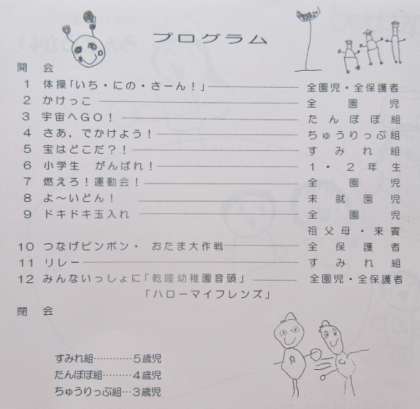 プログラム
開 会
1 体操「いち・にの・さーん！」 全園児・全保護者
2 かけっこ 全園児
3 宇宙へGO！ たんぽぽ組
4 さあ、でかけよう！ ちゅうりっぷ組
5 宝はどこだ？！ すみれ組
6 小学生 がんばれ！ 1・2年生
7 燃えろ！運動会！ 全園児
8 よ～いどん！ 未就園児
9 ドキドキ玉入れ 全園児
祖父母・来賓
10 つなげピンポン・おたま大作戦 全保護者
11 リレー すみれ組
12 みんないっしょに「乾隆幼稚園音頭」 全園児・全保護者
「ハローマイフレンズ」
閉 会
すみれ組…………5歳児
たんぽぽ組………4歳児
ちゅうりっぷ組…3歳児